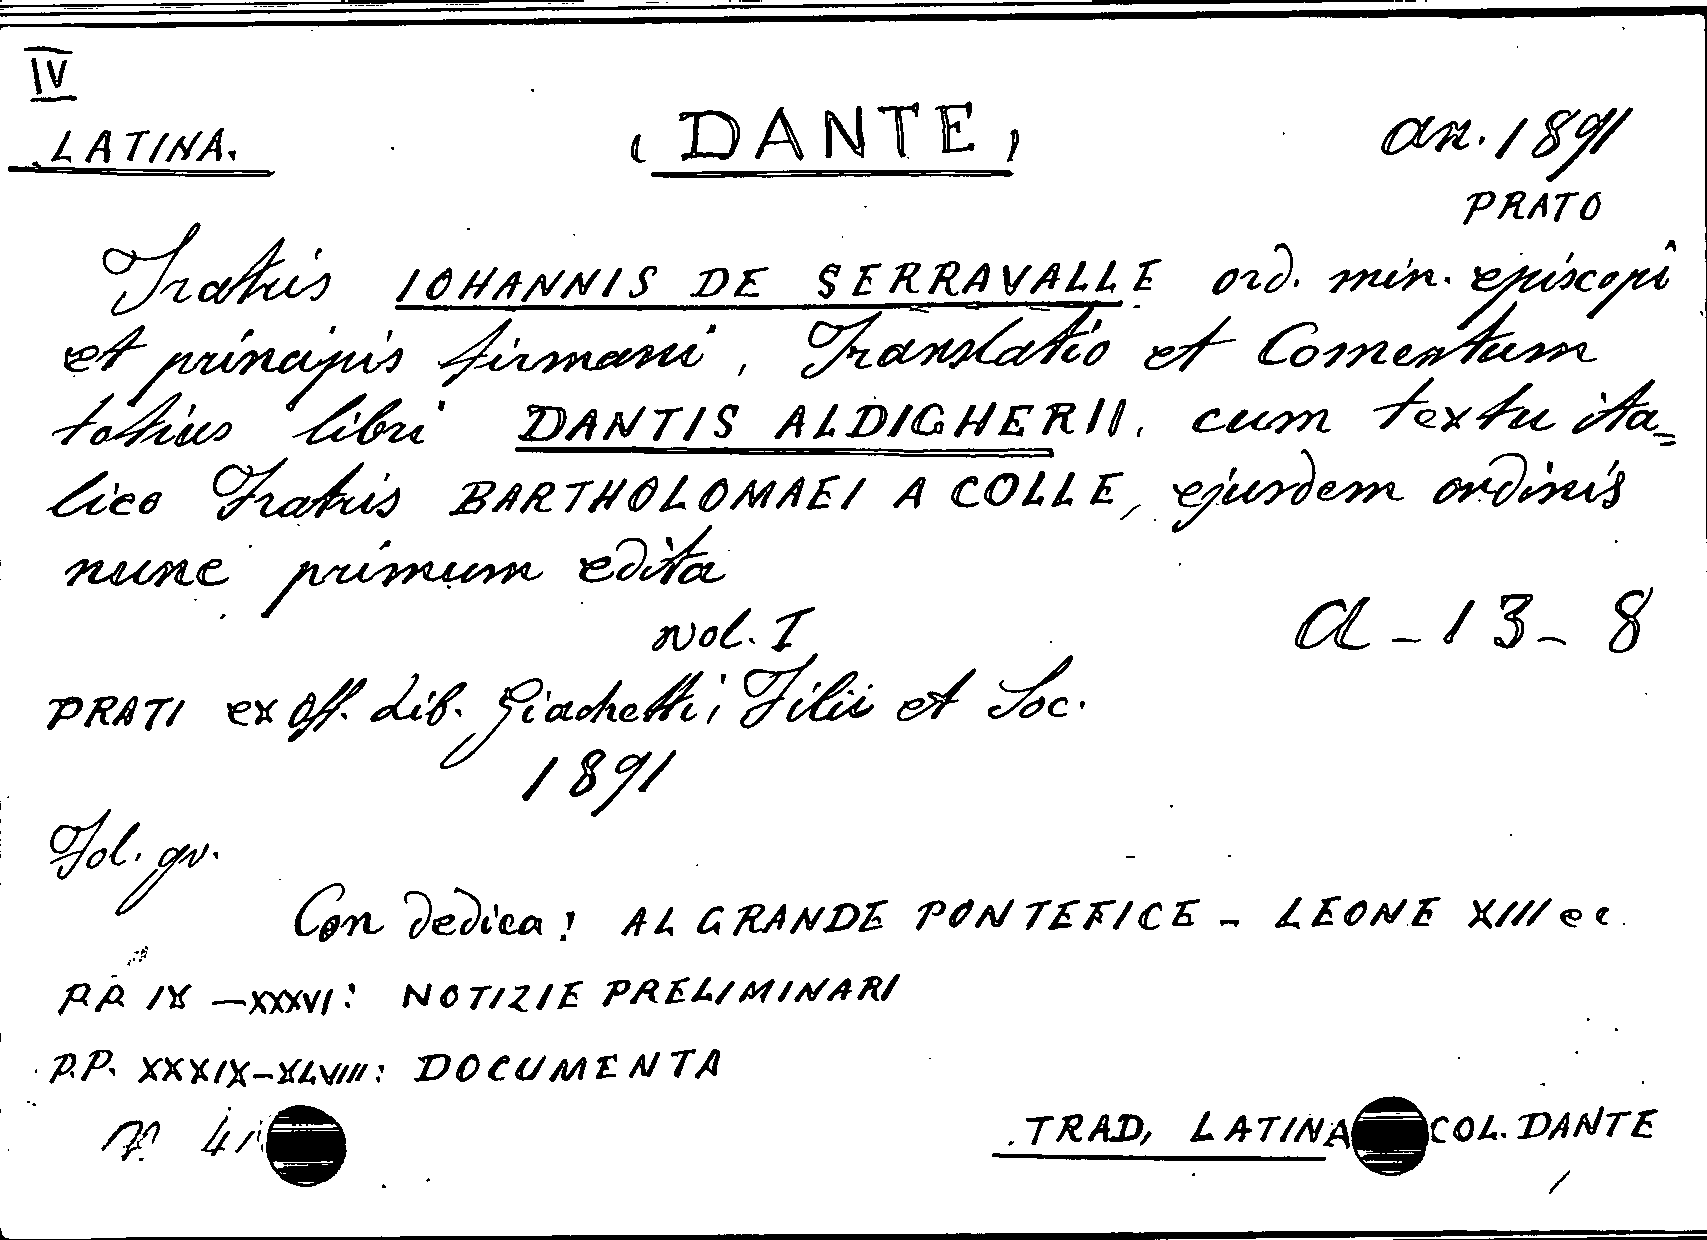 IV
LATINA.
(DANTE)
an. 1891
PRATO
Fratris IOHANNIS DE SERRAVALLE ord. min. episcopi
et principis firmani, Translatio et Comentum
totius libri DANTIS ALDIGHERII, cum textu ita=
lico Fratris BARTHOLOMAEI A COLLE, ejusdem ordinis
nunc primum edita
vol. I
a - 13 - 8
PRATI ex Off. Lib. Giachetti, Filii et Soc.
1891
Fol. gr.
Con dedica: AL GRANDE PONTEFICE - LEONE XIII ec.
P.P. IX - XXXVI: NOTIZIE PRELIMINARI
P.P. XXXIX - XLVIII: DOCUMENTA
TRAD. LATINA COL. DANTE